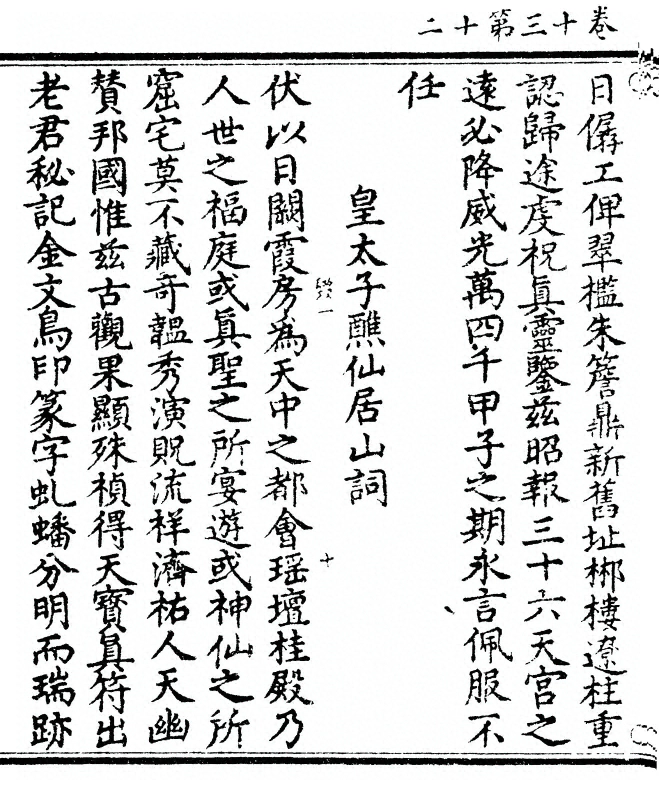 卷十三第十二
日僝工俾翠檻朱簷鼎新舊址梆樓遼柱重
認歸途虔祝眞靈鑒茲昭報三十六天宮之
遠必降威光萬四千甲子之期永言佩服不
任
皇太子醮仙居山詞
伏以日闕霞房為天中之都會瑶壇桂殿乃
人世之福庭或眞聖之所宴遊或神仙之所
窟宅莫不藏奇韞秀演貺流祥濟祐人天幽
賛邦國惟茲古觀果顯殊禎得天寳眞符出
老君秘記金文鳥印篆字虬蟠分明而瑞跡